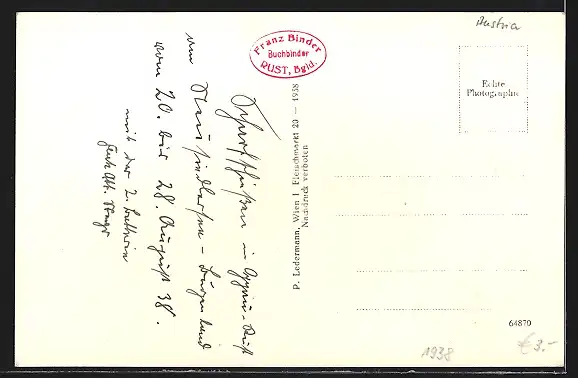 Austria
Franz Binder
Buchbinder
RUST, Bgld.
Echte
Photographie
P. Ledermann, Wien I, Fleischmarkt 20 — 1938
Nachdruck verboten
Scharfschießen in Oggau - Rust
am Neusiedlersee - Burgenland
vom 20. bis 28. August 38.
mit der 2. Batterie
64870
1938
€ 3.-